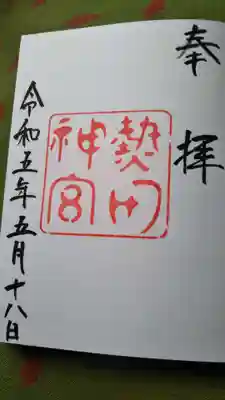 奉拝
熱田
神宮
令和五年五月十八日